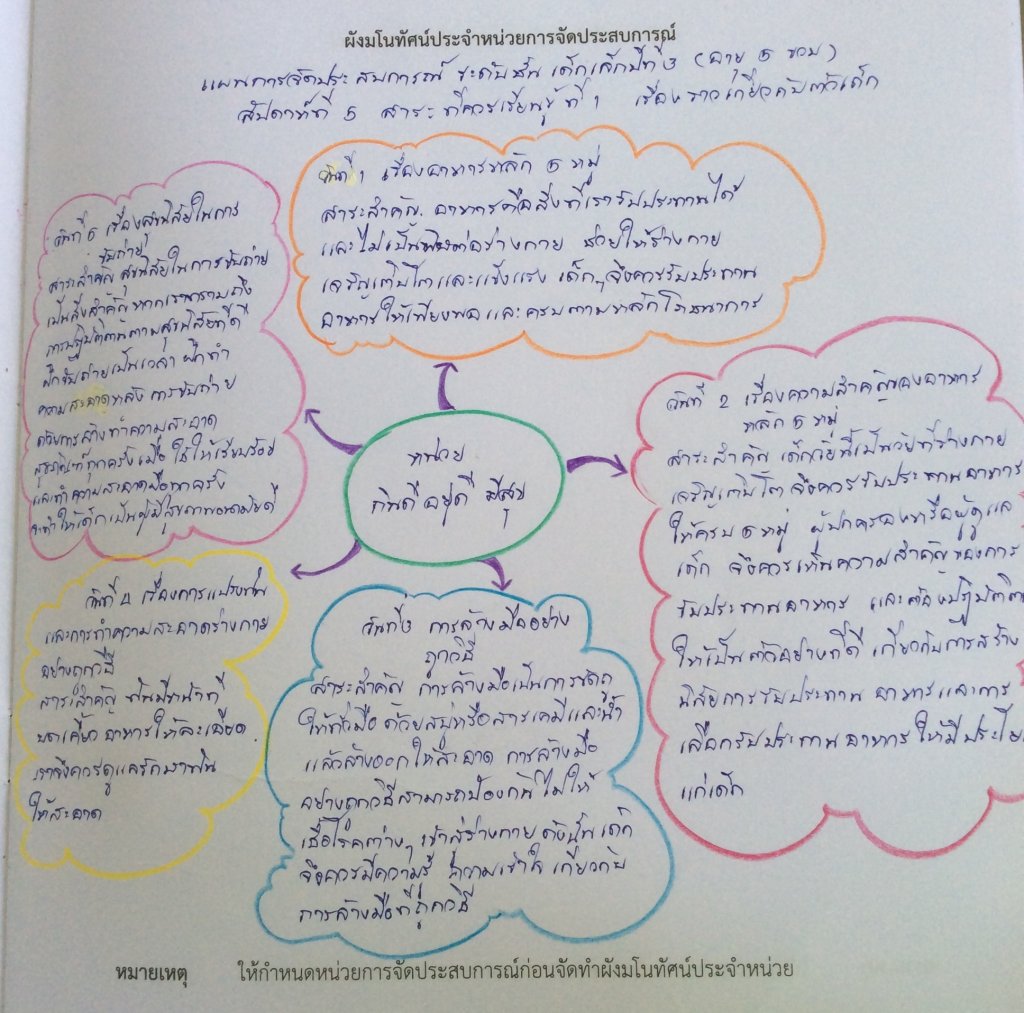 ผังมโนทัศน์ประจำหน่วยการจัดประสบการณ์
แผนการจัดประสบการณ์ ระดับชั้น เด็กเล็กปีที่ 3 (อายุ 5 ขวบ)
สัปดาห์ที่ 5 สาระที่ควรเรียนรู้ที่ 1 เรื่องราวเกี่ยวกับตัวเด็ก
วันที่ 1 เรื่องอาหารหลัก 5 หมู่
สาระสำคัญ อาหารคือสิ่งที่เรารับประทานได้
และไม่เป็นพิษต่อร่างกาย ช่วยให้ร่างกาย
เจริญเติบโตและแข็งแรง เด็กๆจึงควรรับประทาน
อาหารให้เพียงพอและครบตามหลักโภชนาการ
วันที่ 5 เรื่องสุขนิสัยในการ
ขับถ่าย
สาระสำคัญ สุขนิสัยในการขับถ่าย
เป็นสิ่งสำคัญหากเรา
การปฏิบัติตนตามสุขนิสัยที่ดี
ฝึกขับถ่ายเป็นเวลา ฝึกทำ
ความสะอาดหลังการขับถ่าย
ด้วยการล้างทำความสะอาด
สุขภัณฑ์ทุกครั้งเมื่อใช้ให้เรียบร้อย
และทำความสะอาดมือทุกครั้ง
จะทำให้เด็กเป็นผู้มีสุขภาพอนามัยดี
หน่วย
กินดี อยู่ดี มีสุข
วันที่ 2 เรื่องความสำคัญของอาหาร
หลัก 5 หมู่
สาระสำคัญ เด็กวัยนี้เป็นวัยที่ร่างกาย
เจริญเติบโต จึงควรรับประทานอาหาร
ให้ครบ 5 หมู่ ผู้ปกครองหรือผู้ดูแล
เด็ก จึงควรเห็นความสำคัญของการ
รับประทานอาหาร และต้องปฏิบัติ
ให้เป็นตัวอย่างที่ดี เกี่ยวกับการสร้าง
นิสัยการรับประทานอาหารและการ
เลือกรับประทานอาหารให้มีประโย
แก่เด็ก
วันที่ 4 เรื่องการแปรงฟัน
และการทำความสะอาดร่างกาย
อย่างถูกวิธี
สาระสำคัญ ฟันมีหน้าที่
บดเคี้ยวอาหารให้ละเอียด
เราจึงควรดูแลรักษาฟัน
ให้สะอาด
วันที่ 3 การล้างมืออย่าง
ถูกวิธี
สาระสำคัญ การล้างมือเป็นการขัดถู
ให้ทั่วมือ ด้วยสบู่หรือสารเคมีและน้ำ
แล้วล้างออกให้สะอาด การล้างมือ
อย่างถูกวิธีสามารถป้องกันไม่ให้
เชื้อโรคต่างๆ เข้าสู่ร่างกาย ดังนั้น เด็ก
จึงควรมีความรู้ ความเข้าใจ เกี่ยวกับ
การล้างมือที่ถูกวิธี
หมายเหตุ ให้กำหนดหน่วยการจัดประสบการณ์ก่อนจัดทำผังมโนทัศน์ประจำหน่วย